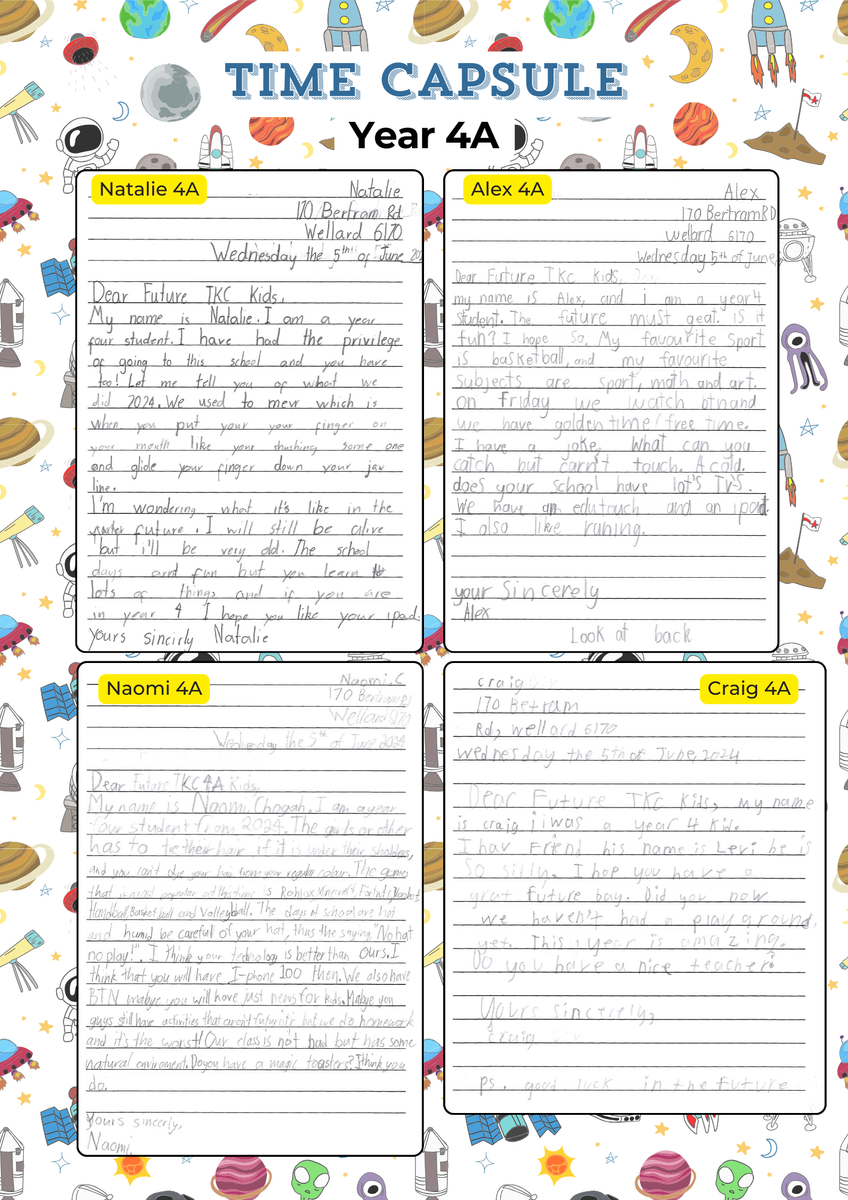 TIME CAPSULE
Year 4A
Natalie 4A
Natalie
170 Bertram Rd
Wellard 6170
Wednesday the 5th of June
Dear Future TKC Kids,
My name is Natalie. I am a year
four student. I have had the privilege
of going to this school and you have
too! Let me tell you of what we
did 2024. We used to mewr which is
when you put your your finger on
your mouth like your shushing some one
and glide your finger down your jaw
line.
I'm wondering what it's like in the
future. I will still be alive
but i'll be very old. The school
days arnt fun but you learn
lots of things and if you are
in year 4 I hope you like your ipad.
yours sincirly Natalie
Alex 4A
Alex
170 Bertram RD
Wellard 6170
Wednesday 5th of June,
Dear Future TKC Kids,
my name is Alex, and i am a year4
student. The future must geat. is it
fun? I hope so. My favourite sport
is basketball, and my favourite
subjects are sport, math and art.
on Friday we watch btnand
we have golden time/free time.
I have a joke, What can you
catch but carn't touch. A cold.
does your school have lot's TVS.
We have an edutouch and an ipad.
I also like runing.
your Sincerely
Alex
Look at back
Naomi 4A
Naomi.C
170 Bertram Rd
Wellard 6170
Wednesday the 5th of June 2024
Dear Future TKC 4A Kids,
My name is Naomi Chogah. I am a year
four student from 2024. The girls or other
has to tie their hair if it is under their sholders,
and you can't dye your hair from your regular colour. The games
that is most popular at this time is Roblox, Minecraft, Fortnite,
Handball, Basket ball and Volleyball. The days at school are hot
and humid be careful of your hat, thus the saying "No hat
no play!". I think your technology is better than ours. I
think that you will have I-phone 100 then. We also have
BTN mabye you will have just news for kids. Mabye you
guys still have activities that arn't futuristic but we do homework
and it's the worst! Our class is not had but has some
natural enviroment. Do you have a magic toasters? I think you
do.
Yours sincerly,
Naomi.
Craig 4A
craig
170 Betram
Rd, wellard 6170
wednesday the 5th of June, 2024
Dear Future TKC Kids, my name
is craig i was a year 4 Kid.
I hav Friend his name is Levi he is
so silly. I hope you have a
grat future bay. Did you now
we haven't had a play ground,
yet. This year is amazing.
Do you have a nice teacher?
Yours sincerely,
Craig
ps. good luck in the Future